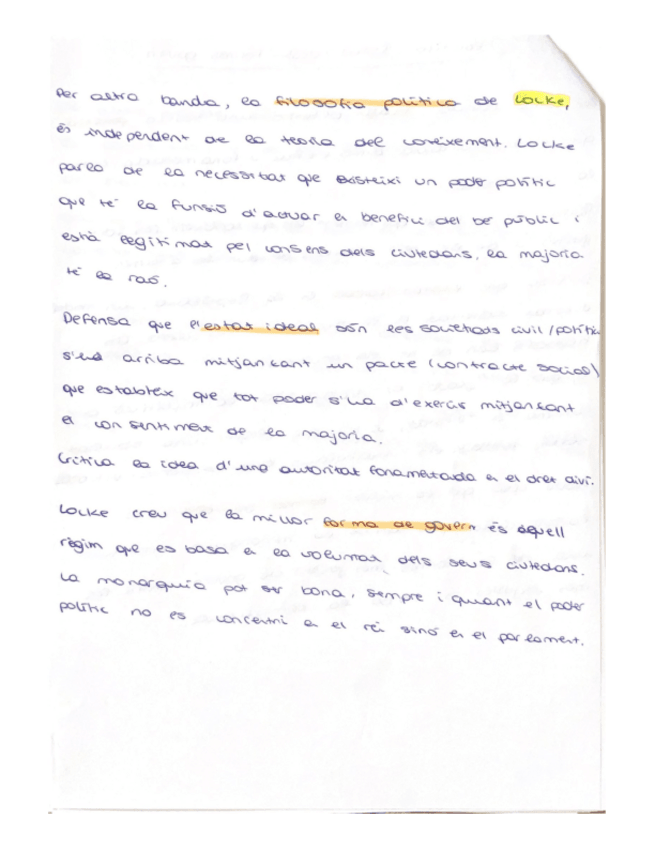 Per altra banda, la filosofia política de Locke,
és independent de la teoria del coneixement. Locke
parla de la necessitat que existeixi un poder polític
que té la funsió d'actuar en benefici del be públic i
està legitimat pel consens dels ciutedans, la majoria
té la raó.
Defensa que l'estat ideal són les societats civil/polític
s'hi arriba mitjançant un pacte (contracte social)
que estableix que tot poder s'ha d'exercir mitjançant
el consentiment de la majoria.
Critica la idea d'una autoritat fonamentada en el dret diví.
Locke creu que la millor forma de govern és aquell
règim que es basa en la voluntat dels seus ciutedans.
La monarquia pot ser bona, sempre i quant el poder
polític no es concentri en el rei sinó en el parlament.